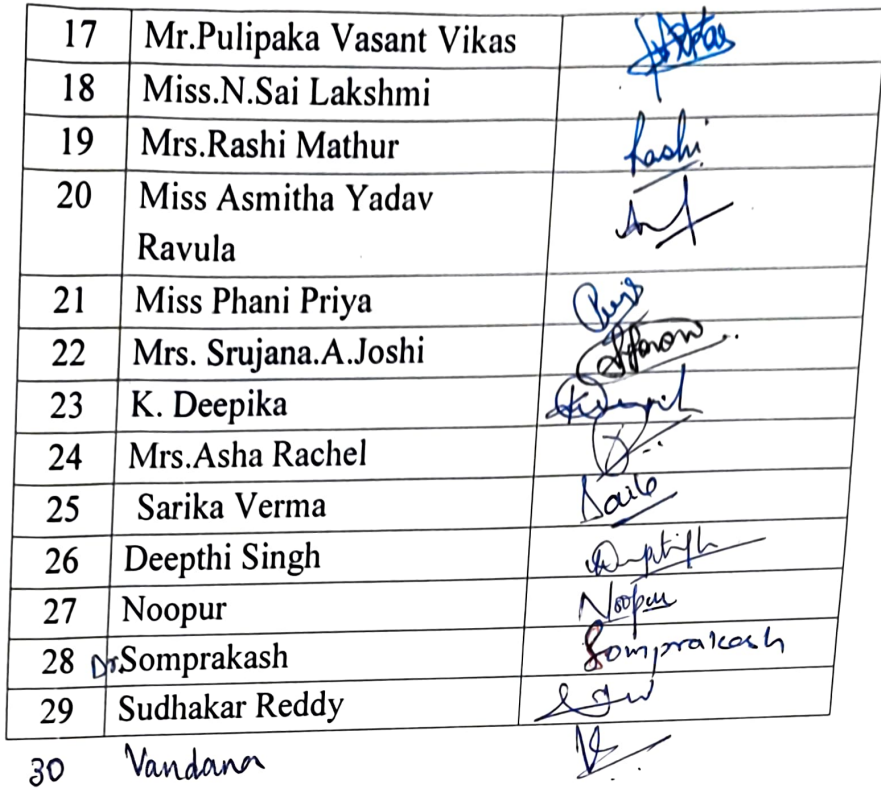 17 Mr.Pulipaka Vasant Vikas
18 Miss.N.Sai Lakshmi
19 Mrs.Rashi Mathur Rashi
20 Miss Asmitha Yadav
Ravula
21 Miss Phani Priya
22 Mrs. Srujana.A.Joshi
23 K. Deepika
24 Mrs.Asha Rachel
25 Sarika Verma
26 Deepthi Singh
27 Noopur Noopur
28 Dr.Somprakash Somprakash
29 Sudhakar Reddy
30 Vandana